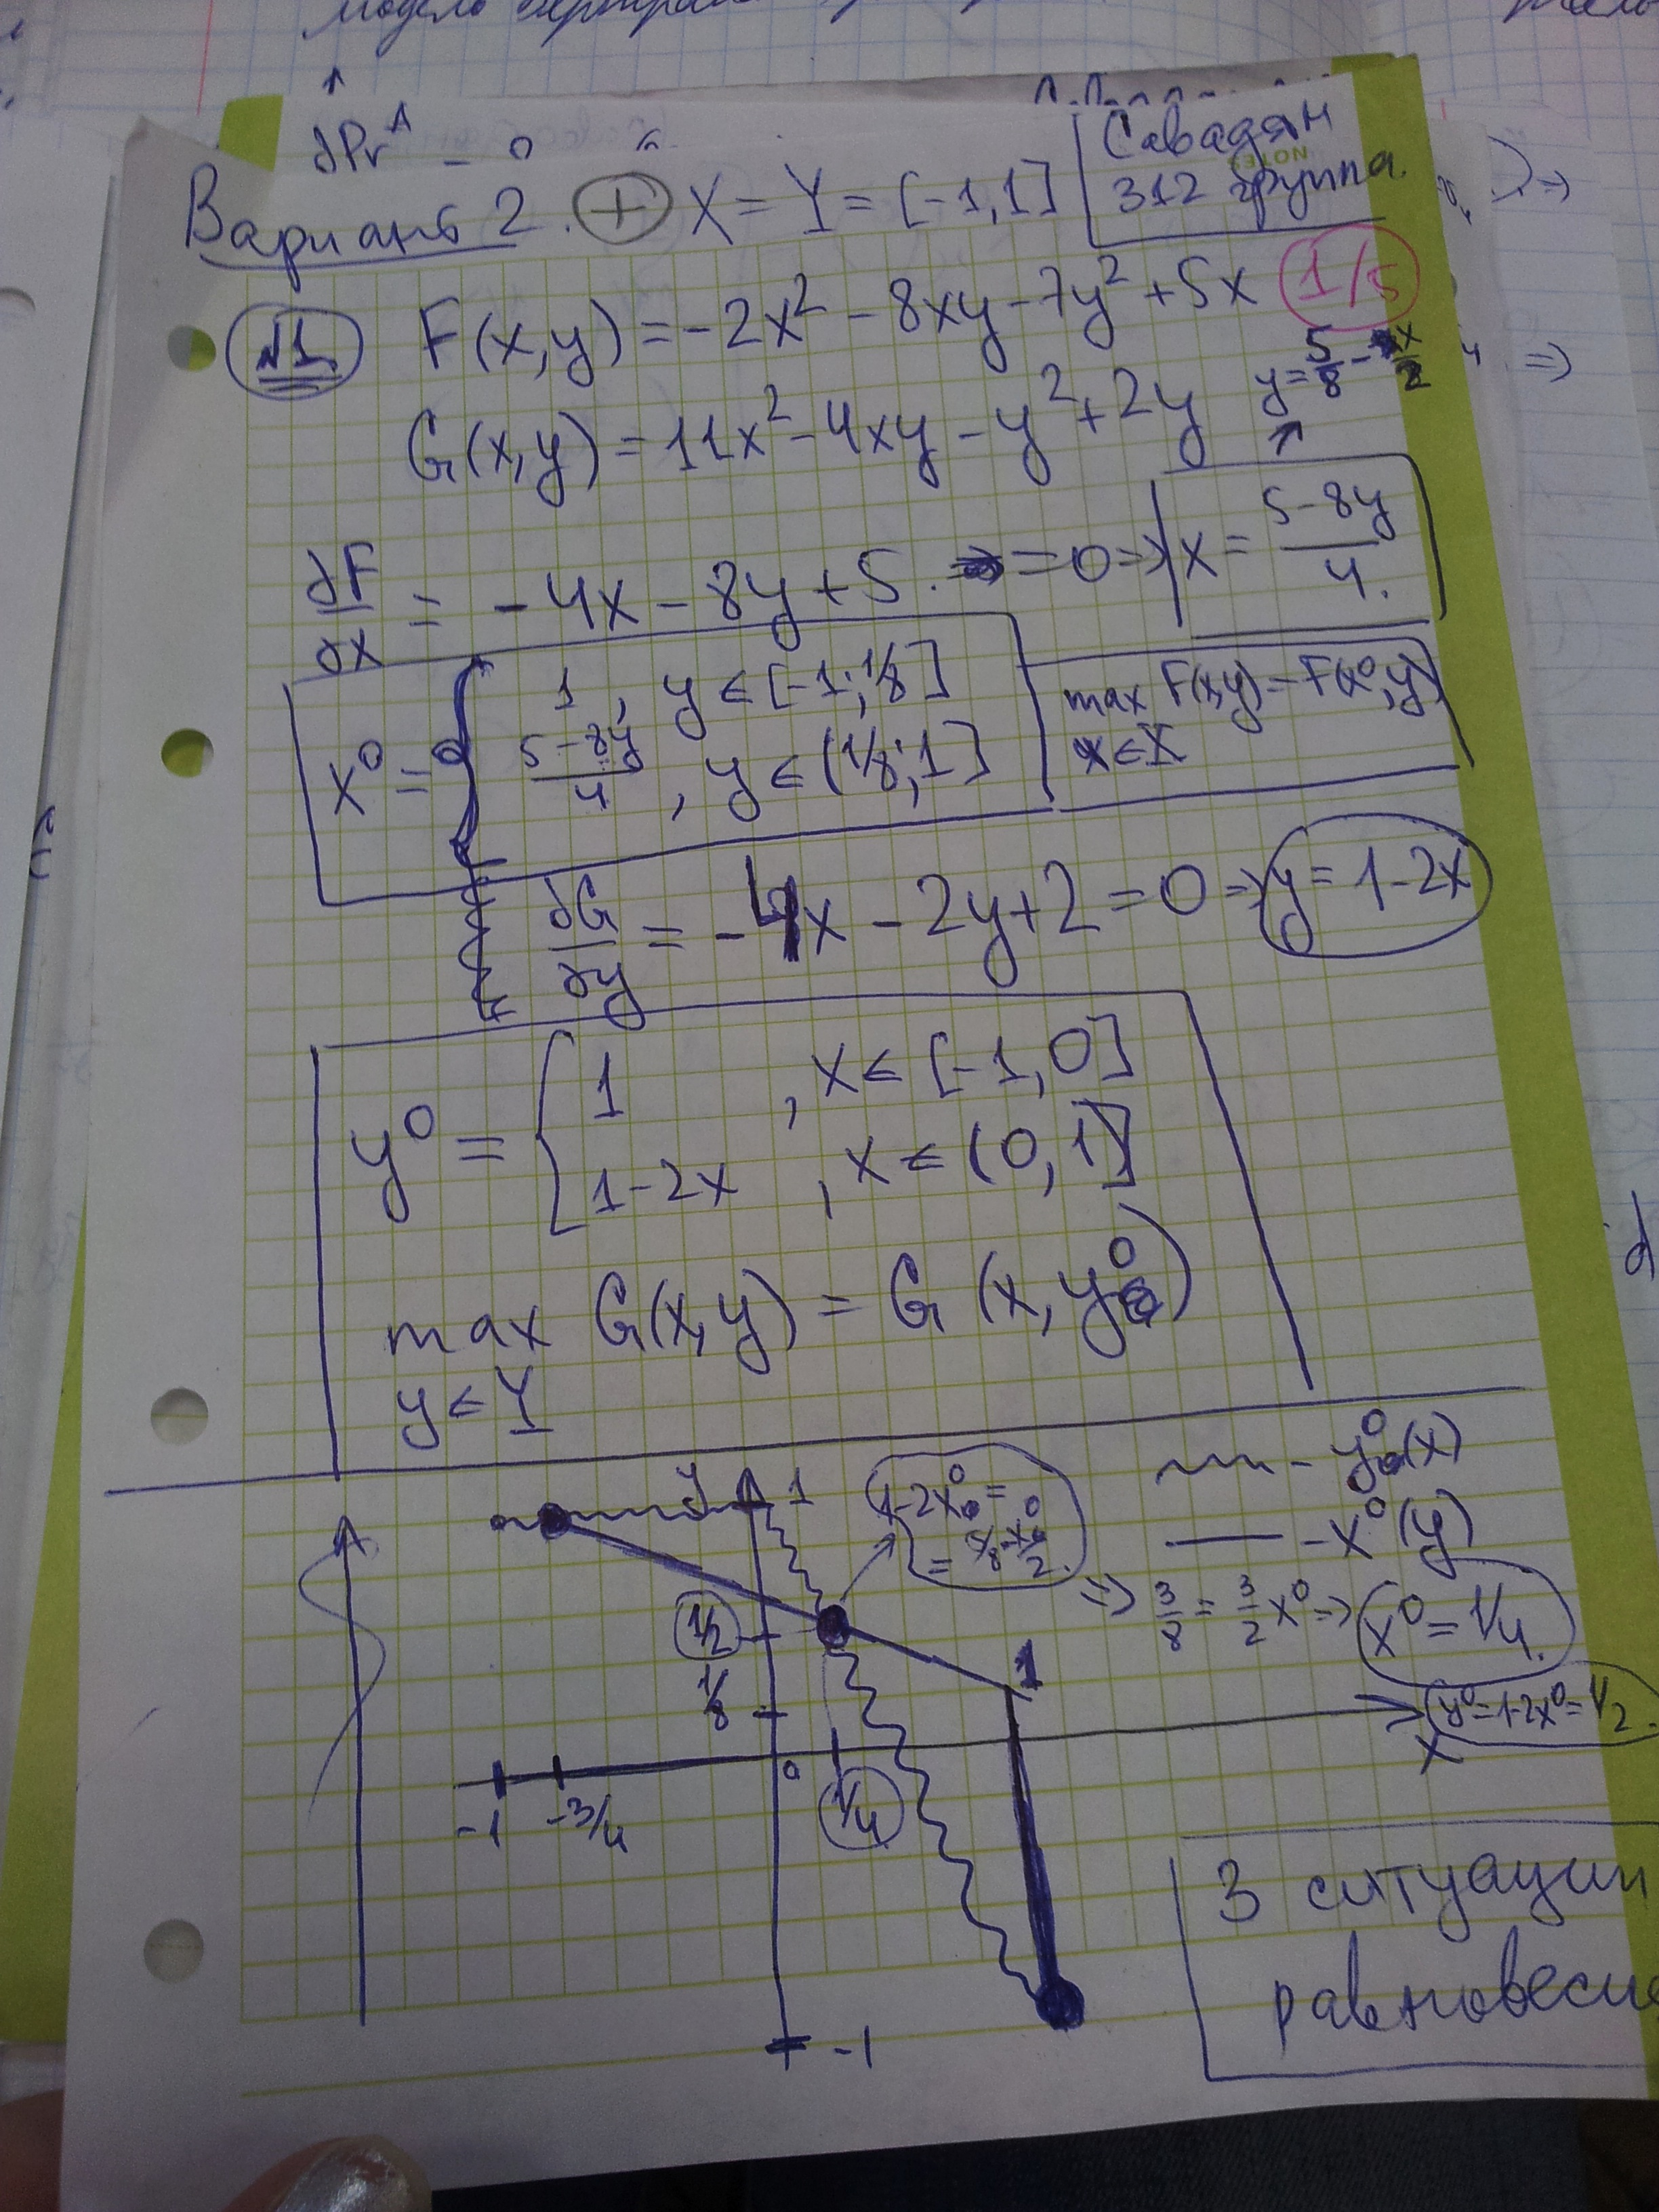 модель
∂Pr^A
Вариант 2. (+) X = Y = [-1,1]
Савадян
312 группа.
NOTES
1/5
№1. F(x,y) = -2x² - 8xy - 7y² + 5x
G(x,y) = 11x² - 4xy - y² + 2y
y = 5/8 - x/2
∂F/∂x = -4x - 8y + 5 = 0 => x = (5-8y)/4.
x⁰ = { 1, y ∈ [-1; 1/8]
(5-8y)/4, y ∈ (1/8; 1]
max F(x,y) = F(x⁰,y)
x ∈ X
∂G/∂y = -4x - 2y + 2 = 0 => y = 1-2x
y⁰ = { 1, x ∈ [-1, 0]
1-2x, x ∈ (0, 1]
max G(x,y) = G(x, y⁰)
y ∈ Y
y 1
1-2x⁰ =
= 5/8 - x⁰/2.
- y⁰(x)
- x⁰(y)
=> 3/8 = 3/2 x⁰ => x⁰ = 1/4.
y⁰ = 1-2x⁰ = 1/2.
1/2
1
1/8
x
0
-1 -3/4 1/4
-1
3 ситуации
равновесия